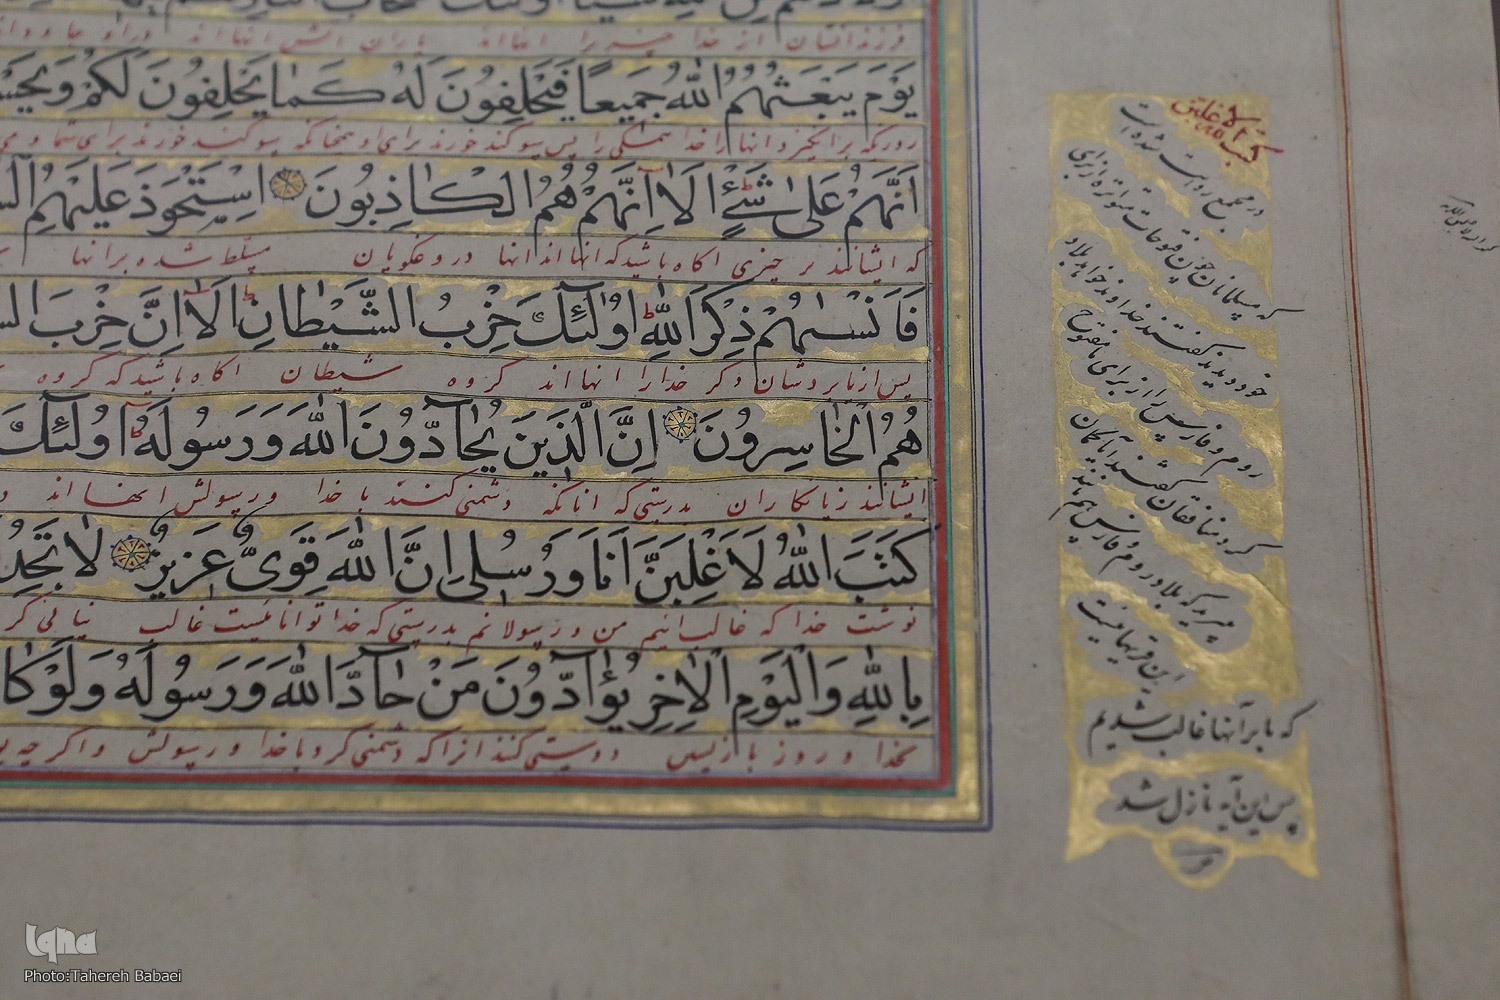 فرزندانشان از خدا چیزی را انها اند یاران اتش انها اند دراو جاودا
يَوْمَ يَبْعَثُهُمُ اللّٰهُ جَمِيعًا فَيَحْلِفُونَ لَهُ كَمٰا يَحْلِفُونَ لَكُمْ وَيَحْسَ
روزیکه برانگیزد انها را خدا همگی را پس سوگند خورند برای او همچنانکه سوگند خورند برای شما و می
اَنَّهُمْ عَلىٰ شَيْءٍ اَلٰا اِنَّهُمْ هُمُ الْكٰاذِبُونَ اِسْتَحْوَذَ عَلَيْهِمُ الش
که ایشانند بر چیزی اکاه باشید که انها اند انها دروغکویان مسلط شده برانها
فَاَنْسٰيهُمْ ذِكْرَ اللّٰهِ اُولٰئِكَ حِزْبُ الشَّيْطٰانِ اَلٰا اِنَّ حِزْبَ الش
پس از یاد بردشان ذکر خدا را انها اند کروه شیطان اکاه باشید که کروه
هُمُ الْخٰاسِرُونَ اِنَّ الَّذِينَ يُحٰآدُّونَ اللّٰهَ وَرَسُولَهُ اُولٰئِكَ
ایشانند زیانکاران بدرستی که انانکه دشمنی کنند با خدا و رسولش انها اند
كَتَبَ اللّٰهُ لَاَغْلِبَنَّ اَنَا وَرُسُلى اِنَّ اللّٰهَ قَوِىٌّ عَزِيزٌ لٰا تَجِدُ
نوشت خدا که غالب ائیم من و رسولانم بدرستی که خدا توانائیست غالب نیابی کر
بِاللّٰهِ وَالْيَوْمِ الْاٰخِرِ يُوٰآدُّونَ مَنْ حٰآدَّ اللّٰهَ وَرَسُولَهُ وَلَوْ كٰا
بخدا و روز بازپسین دوستی کنند انرا که دشمنی کرد با خدا و رسولش و اکر چه
كتب الله لاغلبن
در مجمع روایت شده است
که مسلمانان چون فتوحات متواتره از برای
خود دیدند گفتند خداوند خواهد بلاد
روم و فارس را از برای ما مفتوح
کرد منافقان گفتند ایا گمان
میبرید که بلاد روم و فارس هم مانند
این قریهاییست
که ما بر آنها غالب شدیم
پس این آیه نازل شد
Iqna
Photo:Tahereh Babaei